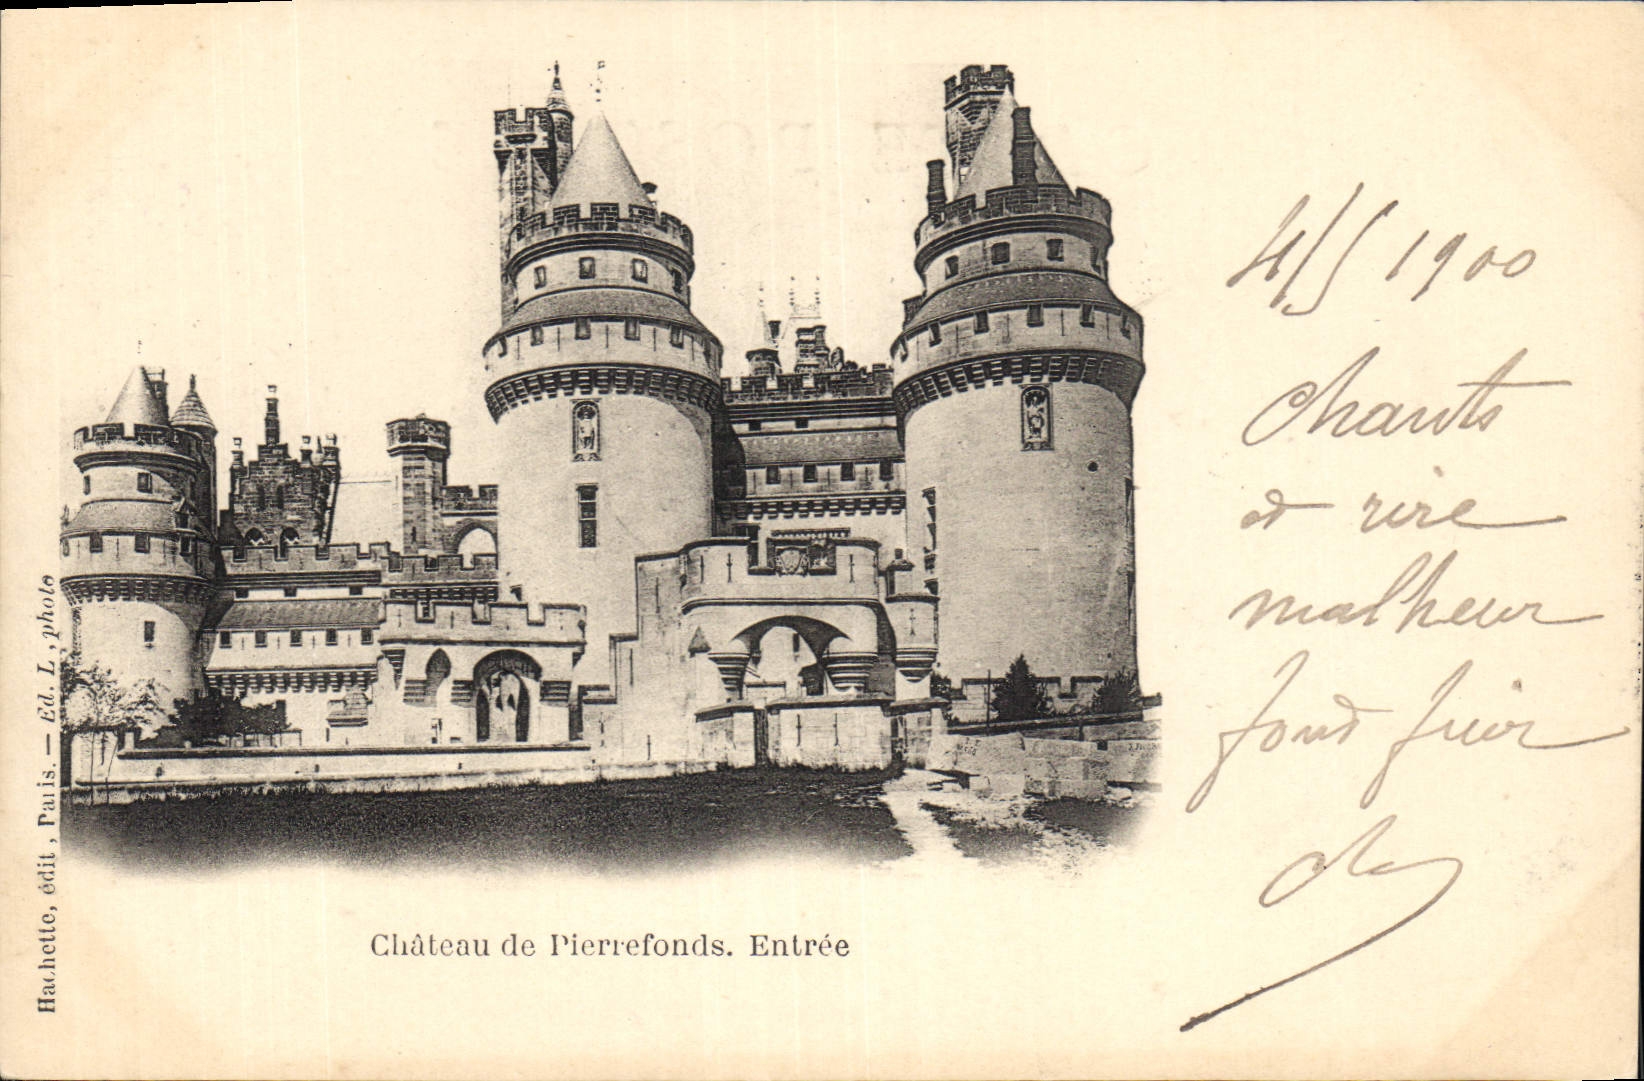 4/5 1900
Chants
et rire
malheur
font fuir
Château de Pierrefonds. Entrée
Hachette, édit, Paris. — Ed. L, photo